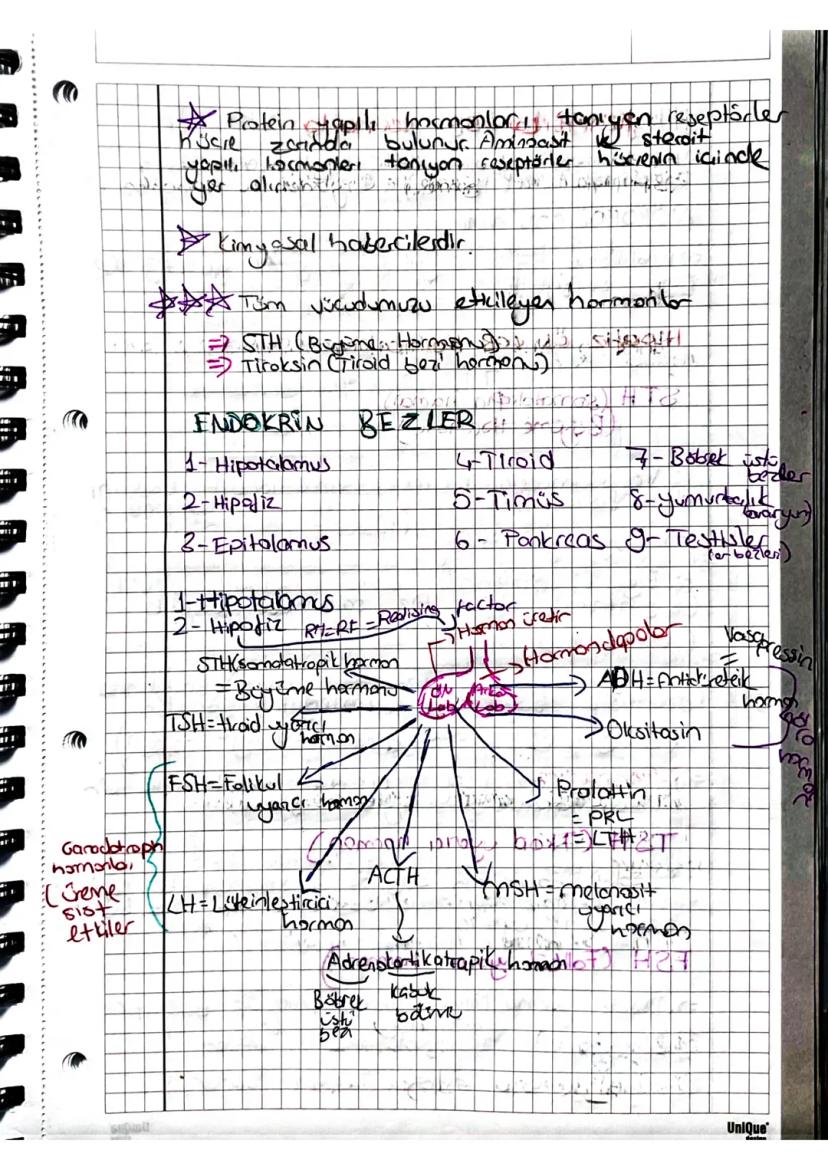 ☆ Protein yapılı hormonları tanıyan reseptörler
hücre zarında bulunur. Aminoasit ve steroit
yapılı hormonları tanıyan reseptörler hücrenin içinde
yer alır
Kimyasal habercilerdir.
☆☆☆ Tüm vücudumuzu etkileyen hormonlar
⇒ STH (Büyüme Hormonu)
⇒ Tiroksin (Tiroid bezi hormonu)
ENDOKRİN BEZLER
1- Hipotalamus 4- Tiroid 7- Böbrek üstü bezler
2- Hipofiz 5- Timüs 8- Yumurtalık (ovaryum)
3- Epitalamus 6- Pankreas 9- Testisler (er bezleri)
1- Hipotalamus
2- Hipofiz RH=RF = Realising factor
→ Hormon üretir
→ Hormon depolar
Ön Lob Arka Lob
STH (somatotropik hormon
= Büyüme hormonu
TSH = tiroid uyarıcı
hormon
FSH = Folikul
uyarıcı hormon
LH = Lüteinleştirici
hormon
hormonlar
(üreme
sist
etkiler
ACTH
Adrenokortikotropik hormon
Böbrek
üstü
bezi
Kabuk
bölme
MSH = melanosit
uyarıcı
hormon
Prolaktin
= PRL
= LTH
Oksitosin
ADH = Antidiüretik
hormon
= Vasopressin